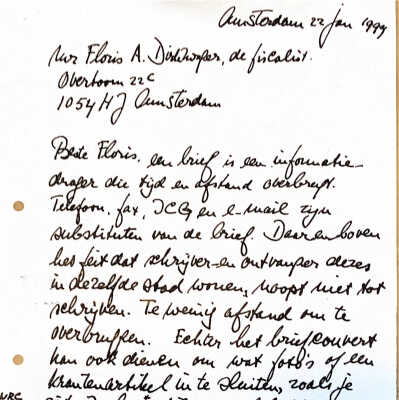 Amsterdam 22 jan 1999
Floris A. de fiscalist.
Overtoom 22c
1054 HJ Amsterdam
Beste Floris, een brief is een informatie-
drager die tijd en afstand overbrugt.
Telefoon, fax, ICQ en e-mail zijn
substituten van de brief. Daarenboven
het feit dat schrijver en ontvanger dezes
in dezelfde stad wonen, noopt niet tot
schrijven. Te weinig afstand om te
overbruggen. Echter het briefcouvert
kan ook dienen om wat foto's of een
krantenartikel in te sluiten, zoals je
NRC